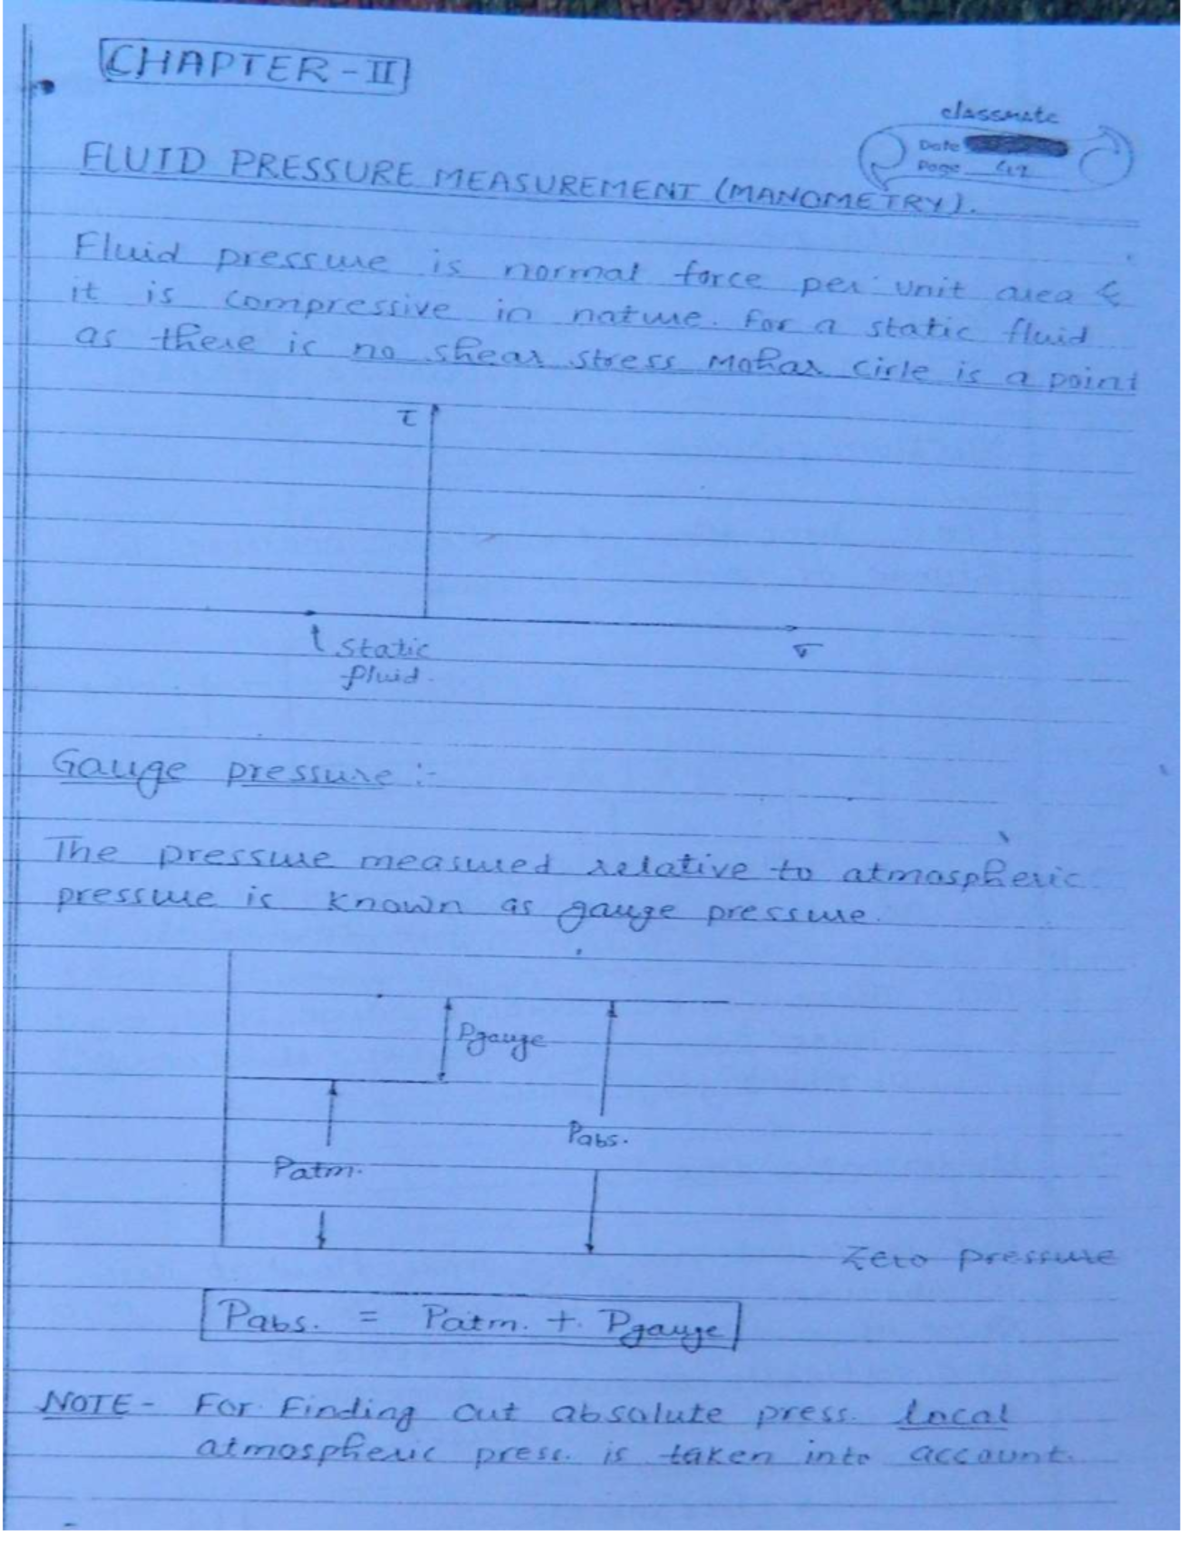 CHAPTER-II
classmate
Date
Page
FLUID PRESSURE MEASUREMENT (MANOMETRY).
Fluid pressure is normal force per unit area &
it is compressive in nature. For a static fluid
as there is no shear stress Mohar Cirle is a point
τ
Static
fluid.
σ
Gauge pressure :-
The pressure measured relative to atmospheric
pressure is known as gauge pressure.
Pgauge
Pabs.
Patm.
Zero pressure
Pabs. = Patm. + Pgauge
NOTE - For Finding out absolute press. local
atmospheric press. is taken into account.